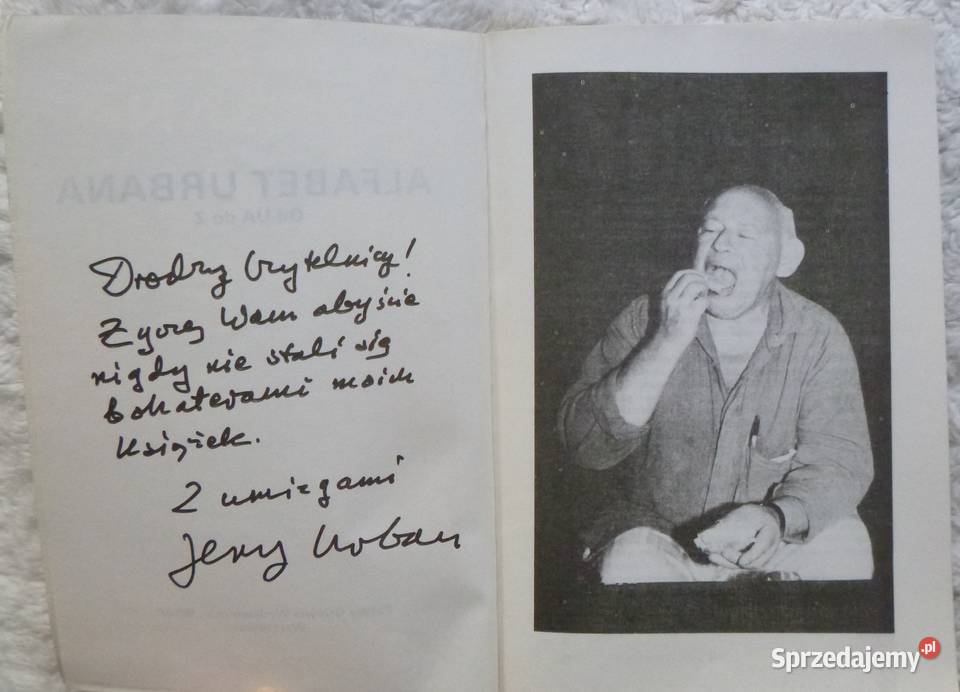 ALFABET URBANA
Od UA do Z
Drodzy Czytelnicy!
Życzę Wam abyście
nigdy nie stali się
bohaterami moich
książek.
Z umizgami
Jerzy Urban
Sprzedajemy.pl